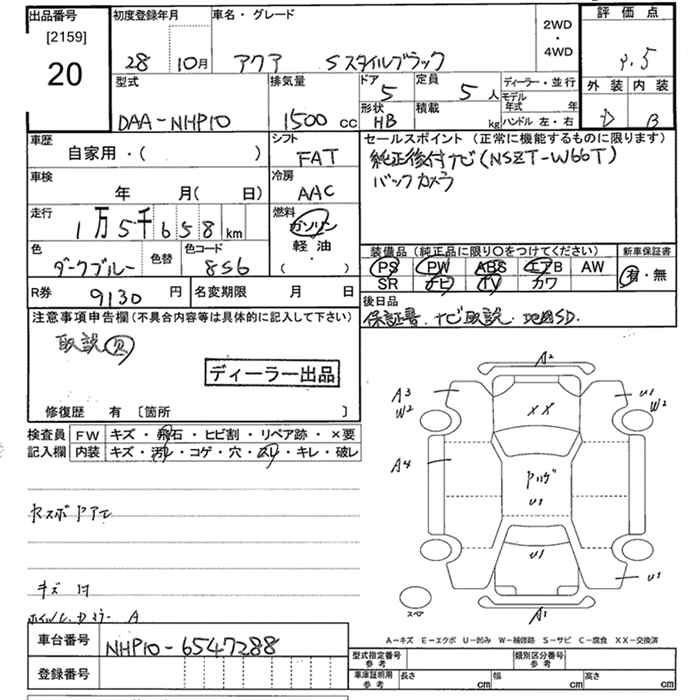 出品番号
[2159]
20
初度登録年月
28 10月
車名・グレード
アクア Sスタイルブラック
2WD
・
4WD
評価点
外装 内装
D B
型式
DAA-NHP10
排気量
1500 cc
ドア
5
定員
5人
形状
HB
積載
kg
ディーラー・並行
モデル年式 年
ハンドル 左・右
車歴
自家用・( )
シフト
FAT
セールスポイント (正常に機能するものに限ります)
純正後付ナビ(NSZT-W66T)
バックカメラ
車検
年 月(日)
冷房
AAC
走行
1万5千658km
燃料
ガソリン
軽油
( ・ )
色
ダークブルー
色替
色コード
8S6
装備品 (純正品に限り○をつけてください)
PS PW ABS エアB AW
SR ナビ TV カワ
新車保証書
有・無
R券
9130円
名変期限 月 日
後日品
保証書、ナビ取説、地図SD.
注意事項申告欄(不具合内容等は具体的に記入して下さい)
取説
ディーラー出品
修復歴 有 [箇所 ]
検査員 FW キズ・飛石・ヒビ割・リペア跡・×要
記入欄 内装 キズ・汚レ・コゲ・穴・スレ・キレ・破レ
キズ
A
A2
A3
W2
U1
W2
XX
A4
U1
U1
U1
スペア
A1
A-キズ E-エクボ U-凹み W-補修跡 S-サビ C-腐食 XX-交換済
車台番号
NHP10-6547288
登録番号
型式指定番号
参考
類別区分番号
参考
車庫証明用
参考
長さ cm
幅 cm
高さ cm